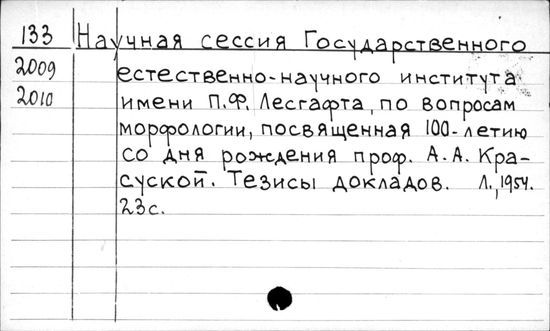 133 Научная сессия Государственного
2009 естественно-научного института
2010 имени П.Ф. Лесгафта, по вопросам
морфологии, посвященная 100-летию
со дня рождения проф. А.А. Кра-
суской. Тезисы докладов. Л., 1954.
23с.